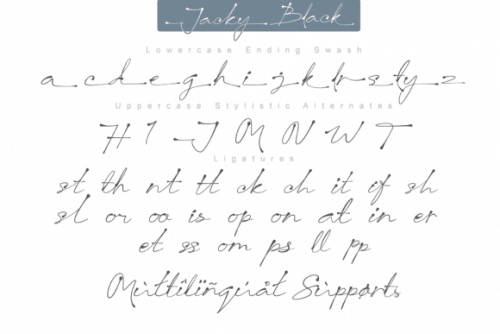 Jacky Black
Lowercase Ending Swash
a c d e g h i j k l r s t y z
Uppercase Stylistic Alternates
H I J M N W T
Ligatures
st th nt tt ck ch it if sh
sl or oo is op on at in er
et ss om ps ll pp
Mültïlïñgúát Süppørts